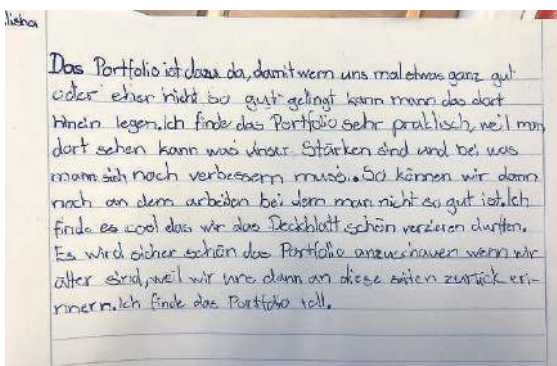 lisha
Das Portfolio ist dazu da, damit wenn uns mal etwas ganz gut
oder eher nicht so gut gelingt kann mann das dort
hinein legen. Ich finde das Portfolio sehr praktisch, weil man
dort sehen kann was unser Stärken sind und bei was
mann sich noch verbessern muss. So können wir dann
noch an dem arbeiten bei dem man nicht so gut ist. Ich
finde es cool das wir das Deckblatt schön verzieren durften.
Es wird sicher schön das Portfolio anzuschauen wenn wir
älter sind, weil wir uns dann an diese zeiten zurück eri-
nnern. Ich finde das Portfolio toll.